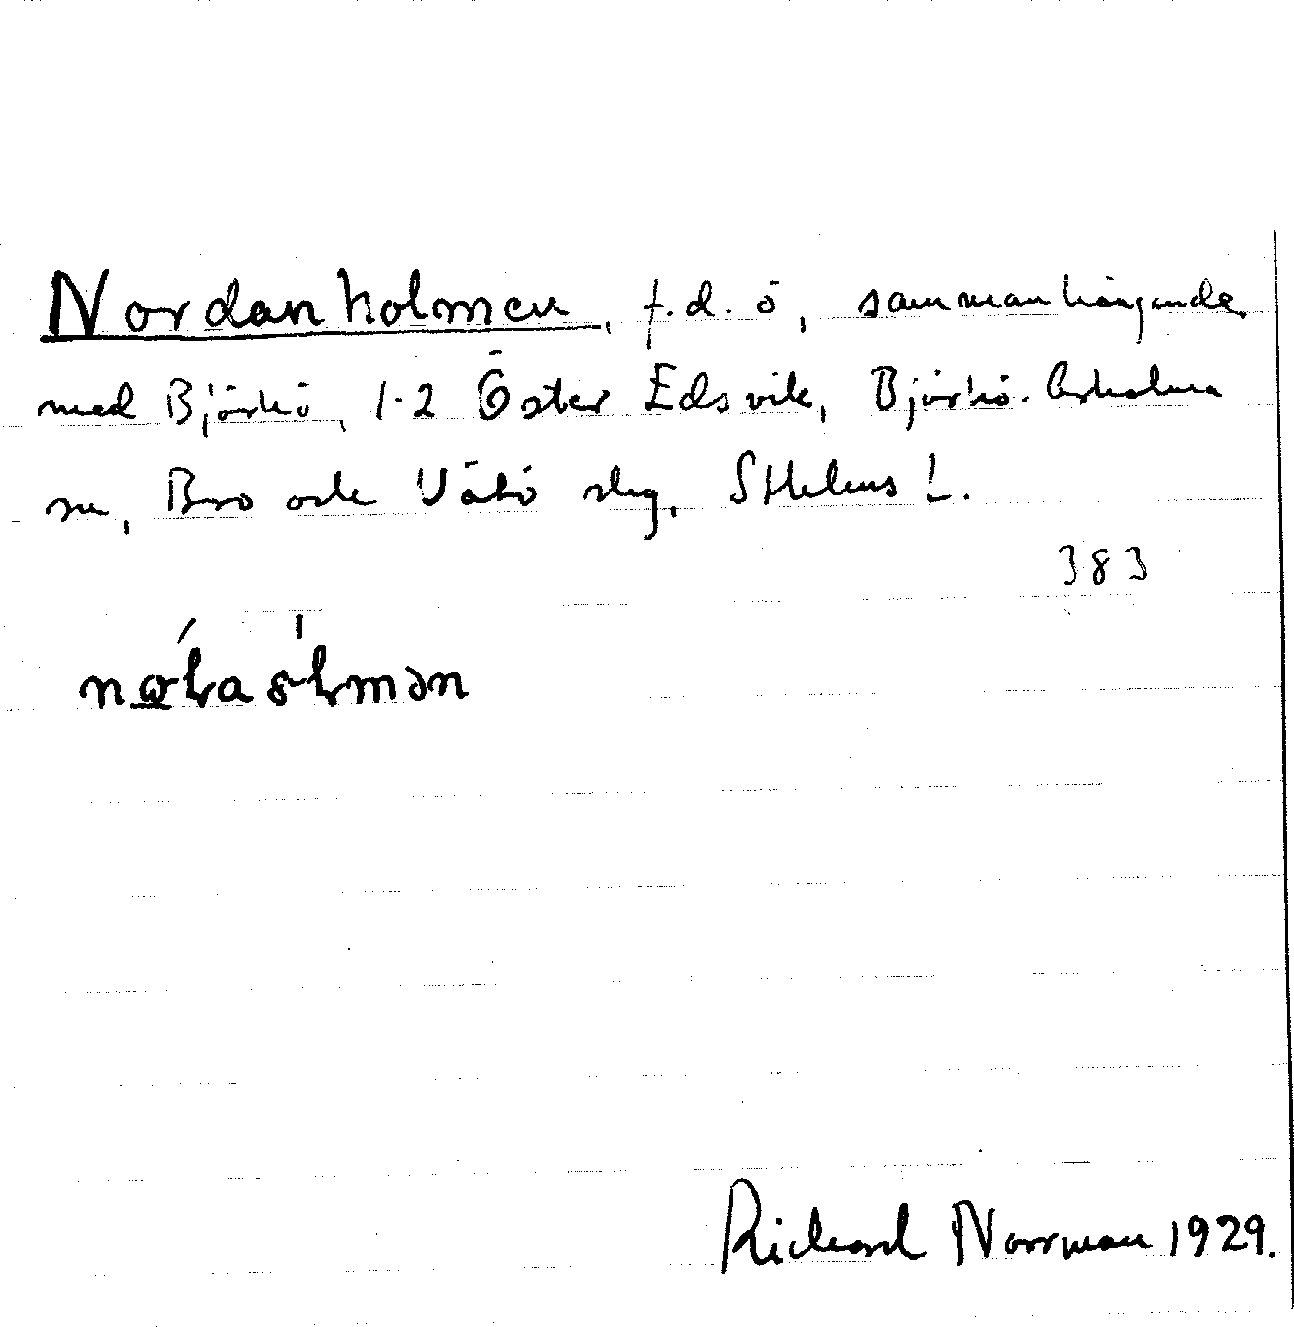 Nordanholmen, f.d. ö, sammanhängande
med Björkö, 1-2 Öster Edsvik, Björkö-Arholma
sn, Bro och Vätö slg, Sthlms L.
383
Richard Norrman 1929.